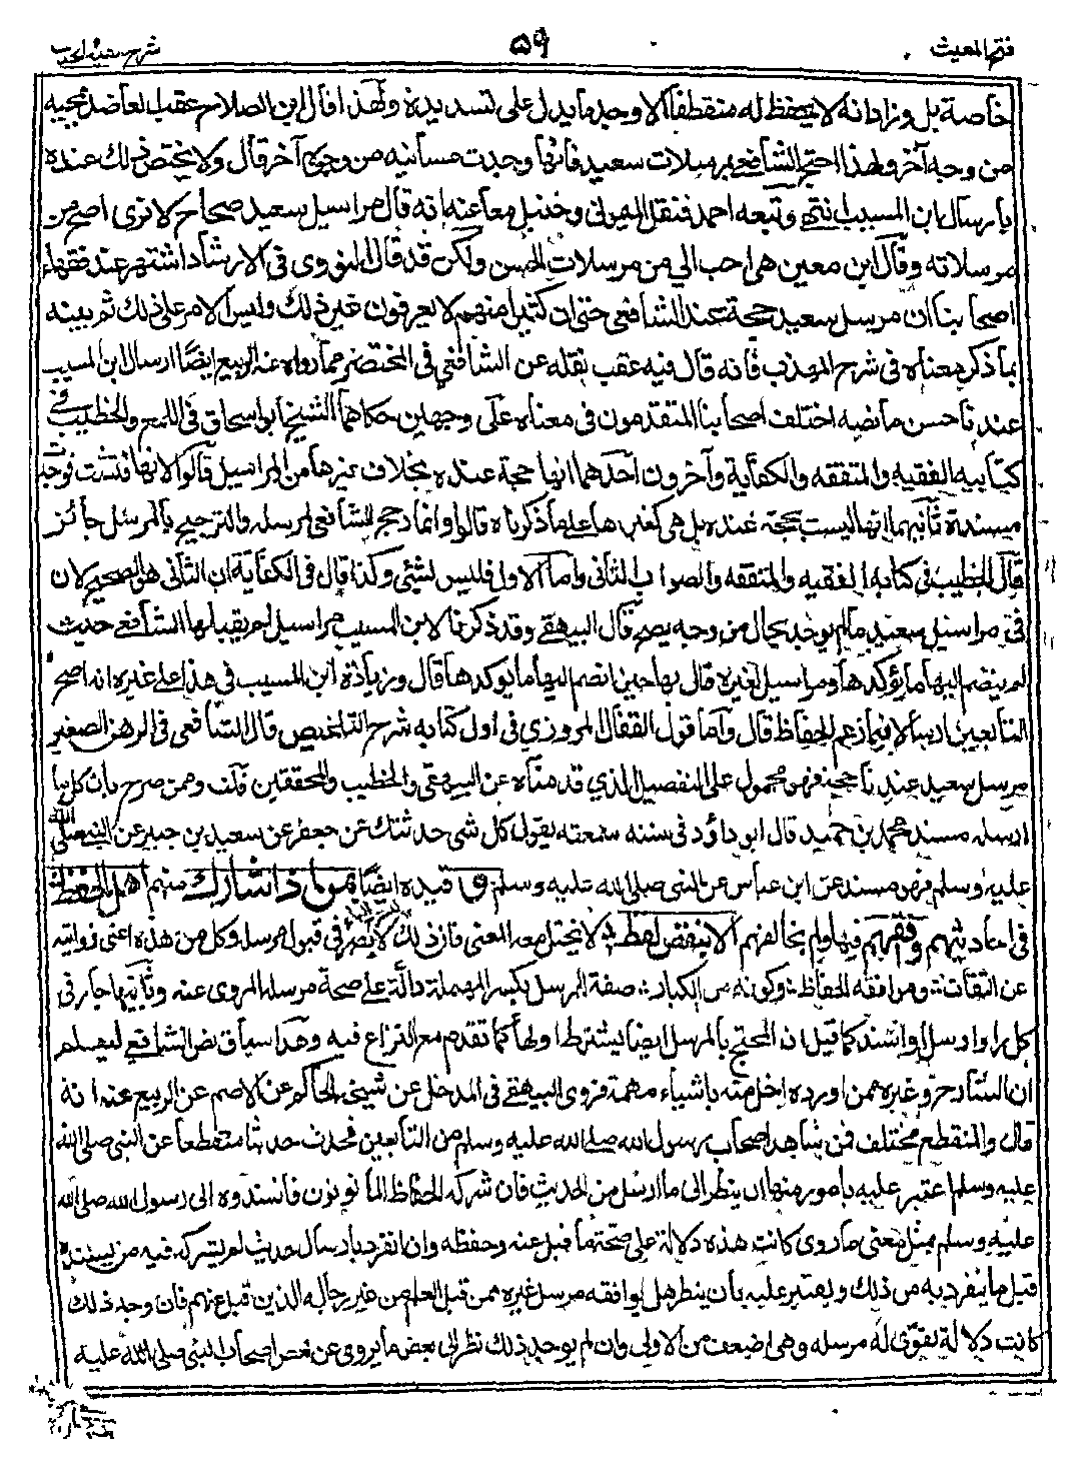 فتح المغيث ۵۹ شرح الفية الحديث
خاصة بل وزاد انه لا يحفظ له منقطعا الا وجد ما يدل على تسديده ولهذا قال ابن الصلاح عقب العاضد بمجيئه
من وجه آخر ولهذا احتج الشافعي بمرسلات سعيد فانها وجدت مسانيد من وجوه آخر قال ولا يختص ذلك عنده
بارسال ابن المسيب انتهى وتبعه احمد فنقل الميموني وحنبل معا عنه انه قال مراسيل سعيد صحاح لا نرى اصح من
مرسلاته وقال ابن معين هي احب الي من مرسلات الحسن ولكن قد قال النووي في الارشاد اشتهر عند فقهاء
اصحابنا ان مرسل سعيد حجة عند الشافعي حتى ان كثيرا منهم لا يعرفون غير ذلك وليس الامر على ذلك ثم بينه
بما ذكر معناه في شرح المهذب فانه قال فيه عقب نقله عن الشافعي في المختصر مما رواه عنه الربيع ايضا ارسال ابن المسيب
عندنا حسن ما نصه اختلف اصحابنا المتقدمون في معناه على وجهين حكاهما الشيخ ابو اسحاق في اللمع والخطيب في
كتابيه الفقيه والمتفقه والكفاية وآخرون احدهما انها حجة عنده بخلاف غيرها من المراسيل قالوا لانها فتشت فوجدت
مسندة ثانيهما انها ليست بحجة عنده بل هي كغيرها على ما ذكرناه قالوا وانما رجح الشافعي لمرسله والترجيح بالمرسل جائز
قال الخطيب في كتابه الفقيه والمتفقه والصواب الثاني واما الاول فليس بشئي وكذا قال في الكفاية ان الثاني هو الصحيح لان
في مراسيل سعيد ما لم يوجد بحال من وجه يصح قال البيهقي وقد ذكرنا لابن المسيب مراسيل لم يقبلها الشافعي حيث
لم ينضم اليها ما يؤكدها ومراسيل لغيره قال بها حين انضم اليها ما يؤكدها قال وزيادة ابن المسيب في هذا على غيره انه اصح
التابعين ارسالا فيما زعم الحفاظ قال واما قول القفال المروزي في اول كتابه شرح التلخيص قال الشافعي في الرهن الصغير
مرسل سعيد عندنا حجة فهو محمول على التفصيل الذي قدمناه عن البيهقي والخطيب والمحققين قلت وممن صرح بان كل ما
ارسله مسند محمد بن حميد قال ابو داؤد في سننه سمعته يقول كل شي حدثتك عن جعفر عن سعيد بن جبير عن النبي صلى الله
عليه وسلم فهو مسند عن ابن عباس عن النبي صلى الله عليه وسلم و قيده ايضا بمن اذا شارك منهم اهل الحفظ
في احاديثهم وفقهم فيها ولم يخالفهم الا بنقص لفظ لا يختل معه المعنى فان ذلك لا يضر في قبول مرسله وكل من هذه اعنى روايته
عن الثقات وموافقة الحفاظ وكونه من الكبار صفة المرسل بكسر المهملة دالة على صحة مرسله المروى عنه وثانيها جار في
كل راو ارسل او اسند كما قيل ان المحتج بالمرسل ايضا يشترط اولها كما تقدم مع النزاع فيه وهذا سياق نص الشافعي ليعلم
ان الشارح وغيره ممن اورده اخل منه باشياء مهمة فروى البيهقي في المدخل عن شيخه الحاكم عن الاصم عن الربيع عنه انه
قال والمنقطع مختلف فمن شاهد اصحاب رسول الله صلى الله عليه وسلم من التابعين فحدث حديثا منقطعا عن النبي صلى الله
عليه وسلم اعتبر عليه بامور منها ان ينظر الى ما ارسل من الحديث فان شركه الحفاظ المأمونون فاسندوه الى رسول الله صلى الله
عليه وسلم بمثل معنى ما روى كانت هذه دلالة على صحة ما قبل عنه وحفظه وان انفرد بارسال حديث لم يشركه فيه من يسنده
قبل ما ينفرد به من ذلك ويعتبر عليه بان ينظر هل يوافقه مرسل غيره ممن قبل العلم من غير رجاله الذين قبل عنهم فان وجد ذلك
كانت دلالة تقوى له مرسله وهي اضعف من الاولى وان لم يوجد ذلك نظر الى بعض ما يروى عن بعض اصحاب النبي صلى الله عليه